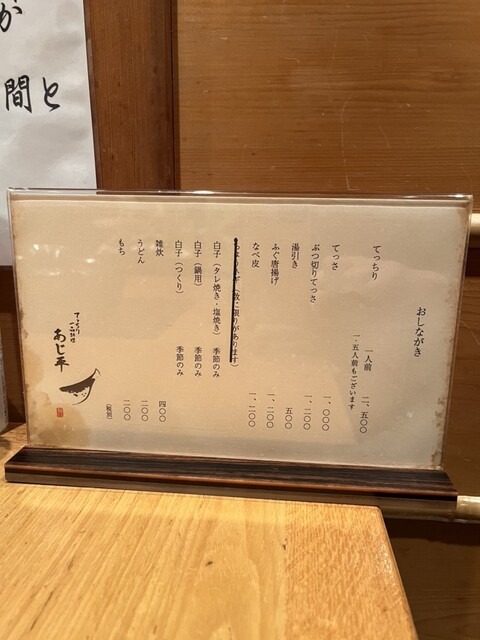 が
間と
おしながき
てっちり 一人前 二、五〇〇
一・五人前もございます
てっさ 一、〇〇〇
ぶつ切りてっさ 一、二〇〇
湯引き 五〇〇
ふぐ唐揚げ 一、二〇〇
なべ皮 一、二〇〇
(数に限りがあります)
白子(タレ焼き・塩焼き) 季節のみ
白子(鍋用) 季節のみ
白子(つくり) 季節のみ
雑炊 四〇〇
うどん 二〇〇
もち 二〇〇
(税別)
てっちり
あじ平